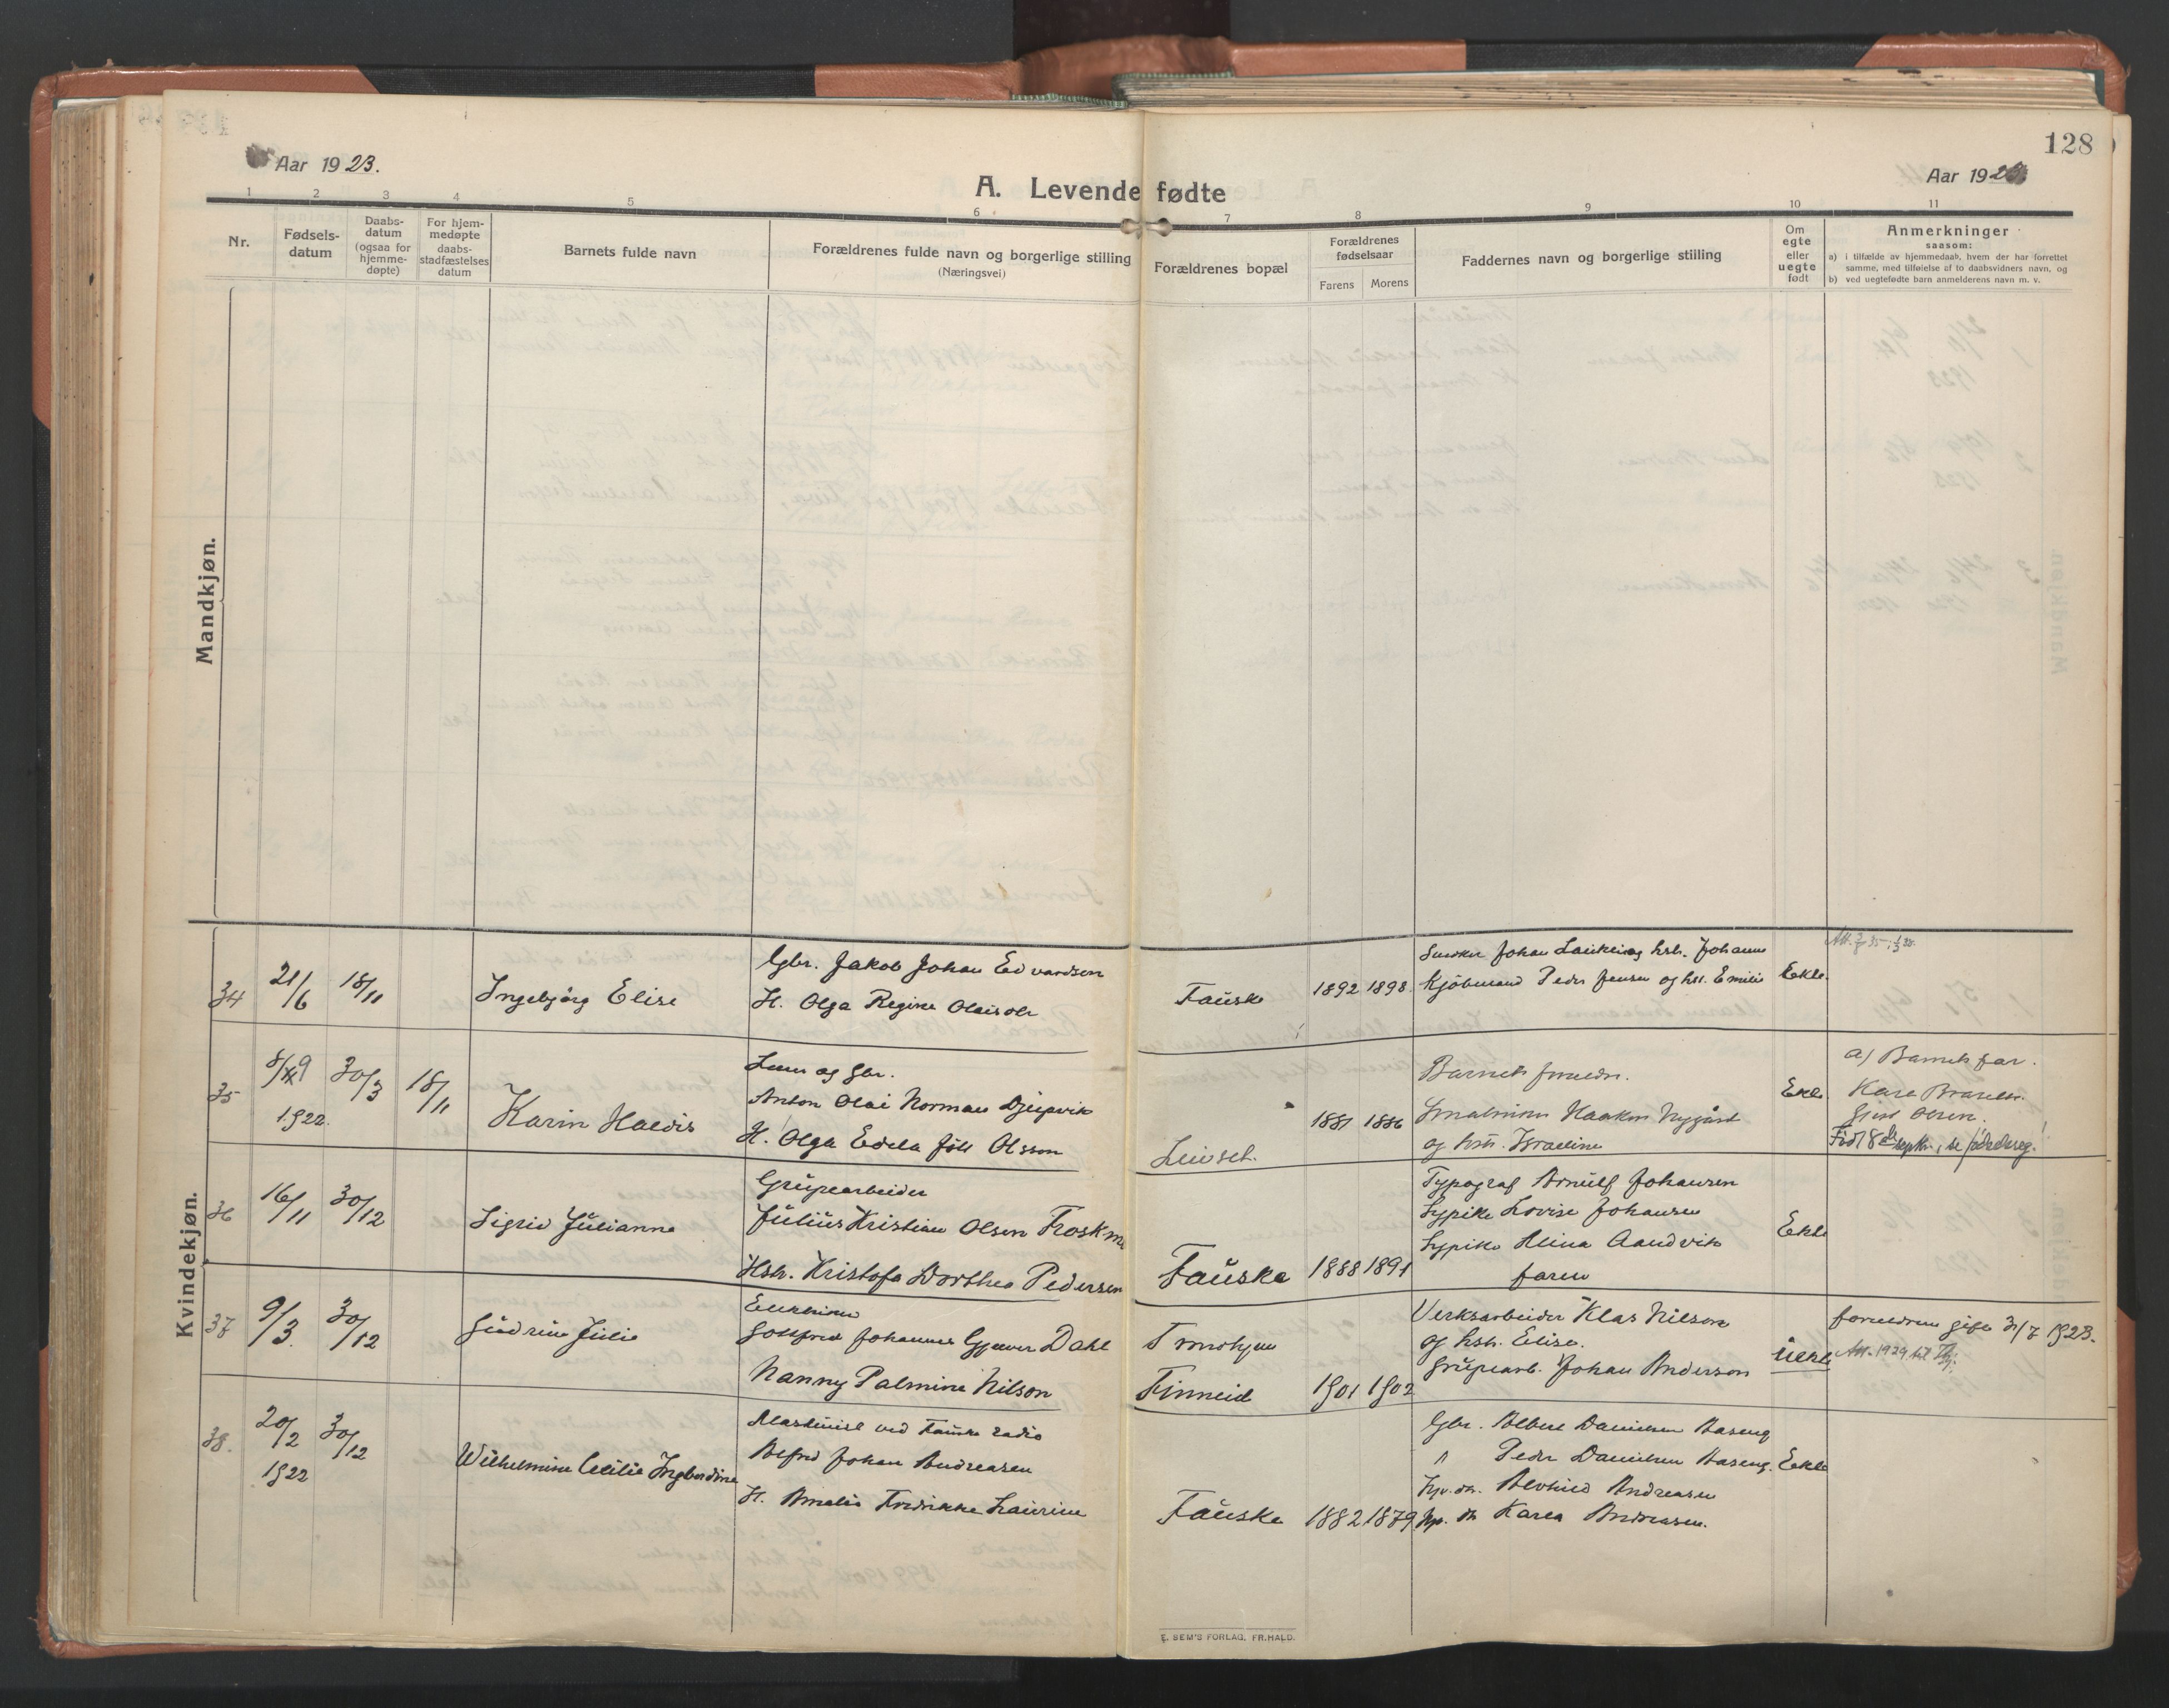 128
Aar 1923.
Aar 192
A. Levende fødte
1 2 3 4 5 6 7 8 9 10 11
Nr.
Fødsels-
datum
Daabs-
datum
(ogsaa for
hjemme-
døpte)
For hjem-
medøpte
daabs-
stadfæstelses
datum
Barnets fulde navn
Forældrenes fulde navn og borgerlige stilling
(Næringsvei)
Forældrenes bopæl
Forældrenes
fødselsaar
Farens Morens
Faddernes navn og borgerlige stilling
Om
egte
eller
uegte
født
Anmerkninger
saasom:
a) i tilfælde av hjemmedaab, hvem der har forrettet
samme, med tilføielse af to daabsvidners navn, og
b) ved uegtefødte barn anmelderens navn m. v.
Mandkjøn.
Kvindekjøn.
34
21/6
18/11
Ingebjørg Elise
Gbr. Jakob Johan Edvardsen
H. Olga Regine Olaisdtr
Fauske
1892 1898
Johan og hstr. Johanne
Kjøbmand Peder Jensen og hst. Emilie
Ekte.
35
8/9
1922.
30/3
18/11
Karin Haldis
og gbr.
Anton Olai Norman Djupvik
H. Olga Edela Olsson
Leivset.
1881 1886
Barnets foreldre.
Haakon Nygård
og hstr. Israeline
Ekte.
a) Barnets far.
Kare
Olsen.
Født 8de septbr., se fødselsreg.!
36
16/11
30/12
Sigrid Julianne
Grubearbeider
Julius Kristian Olsen Froskm
Hstr. Kristofa Dorthea Pedersen
Fauske
1888 1891
Typograf Arnulf Johansen
Sypike Lovise Johansen
Sypike Alina Aandvik
faren
Ekte
37
9/3.
30/12
Gudrun Julie
Gottfred Johannes Gjæver Dahl
Nanny Palmine Nilson
Tronhjem
Finneid
1901 1902
Verksarbeider Klas Nilson
og hstr. Elise.
Grubearb. Johan Anderson
Uekte
foreldrene gift 31/7 1923.
Att. 1929 til
38.
20/2
1922
30/12
Wilhelmine Cecilie Ingbordine
Maskinist ved Fauske radio
Alfred Johan Andreasen
H. Amalie Fredrikke Laurine
Fauske
1882 1879
Gbr. Albert Danielsen Aaseng
" Peder Danielsen Aaseng.
Andreasen
Karen Andreasen.
Ekte
E. SEM'S FORLAG, FR.HALD.